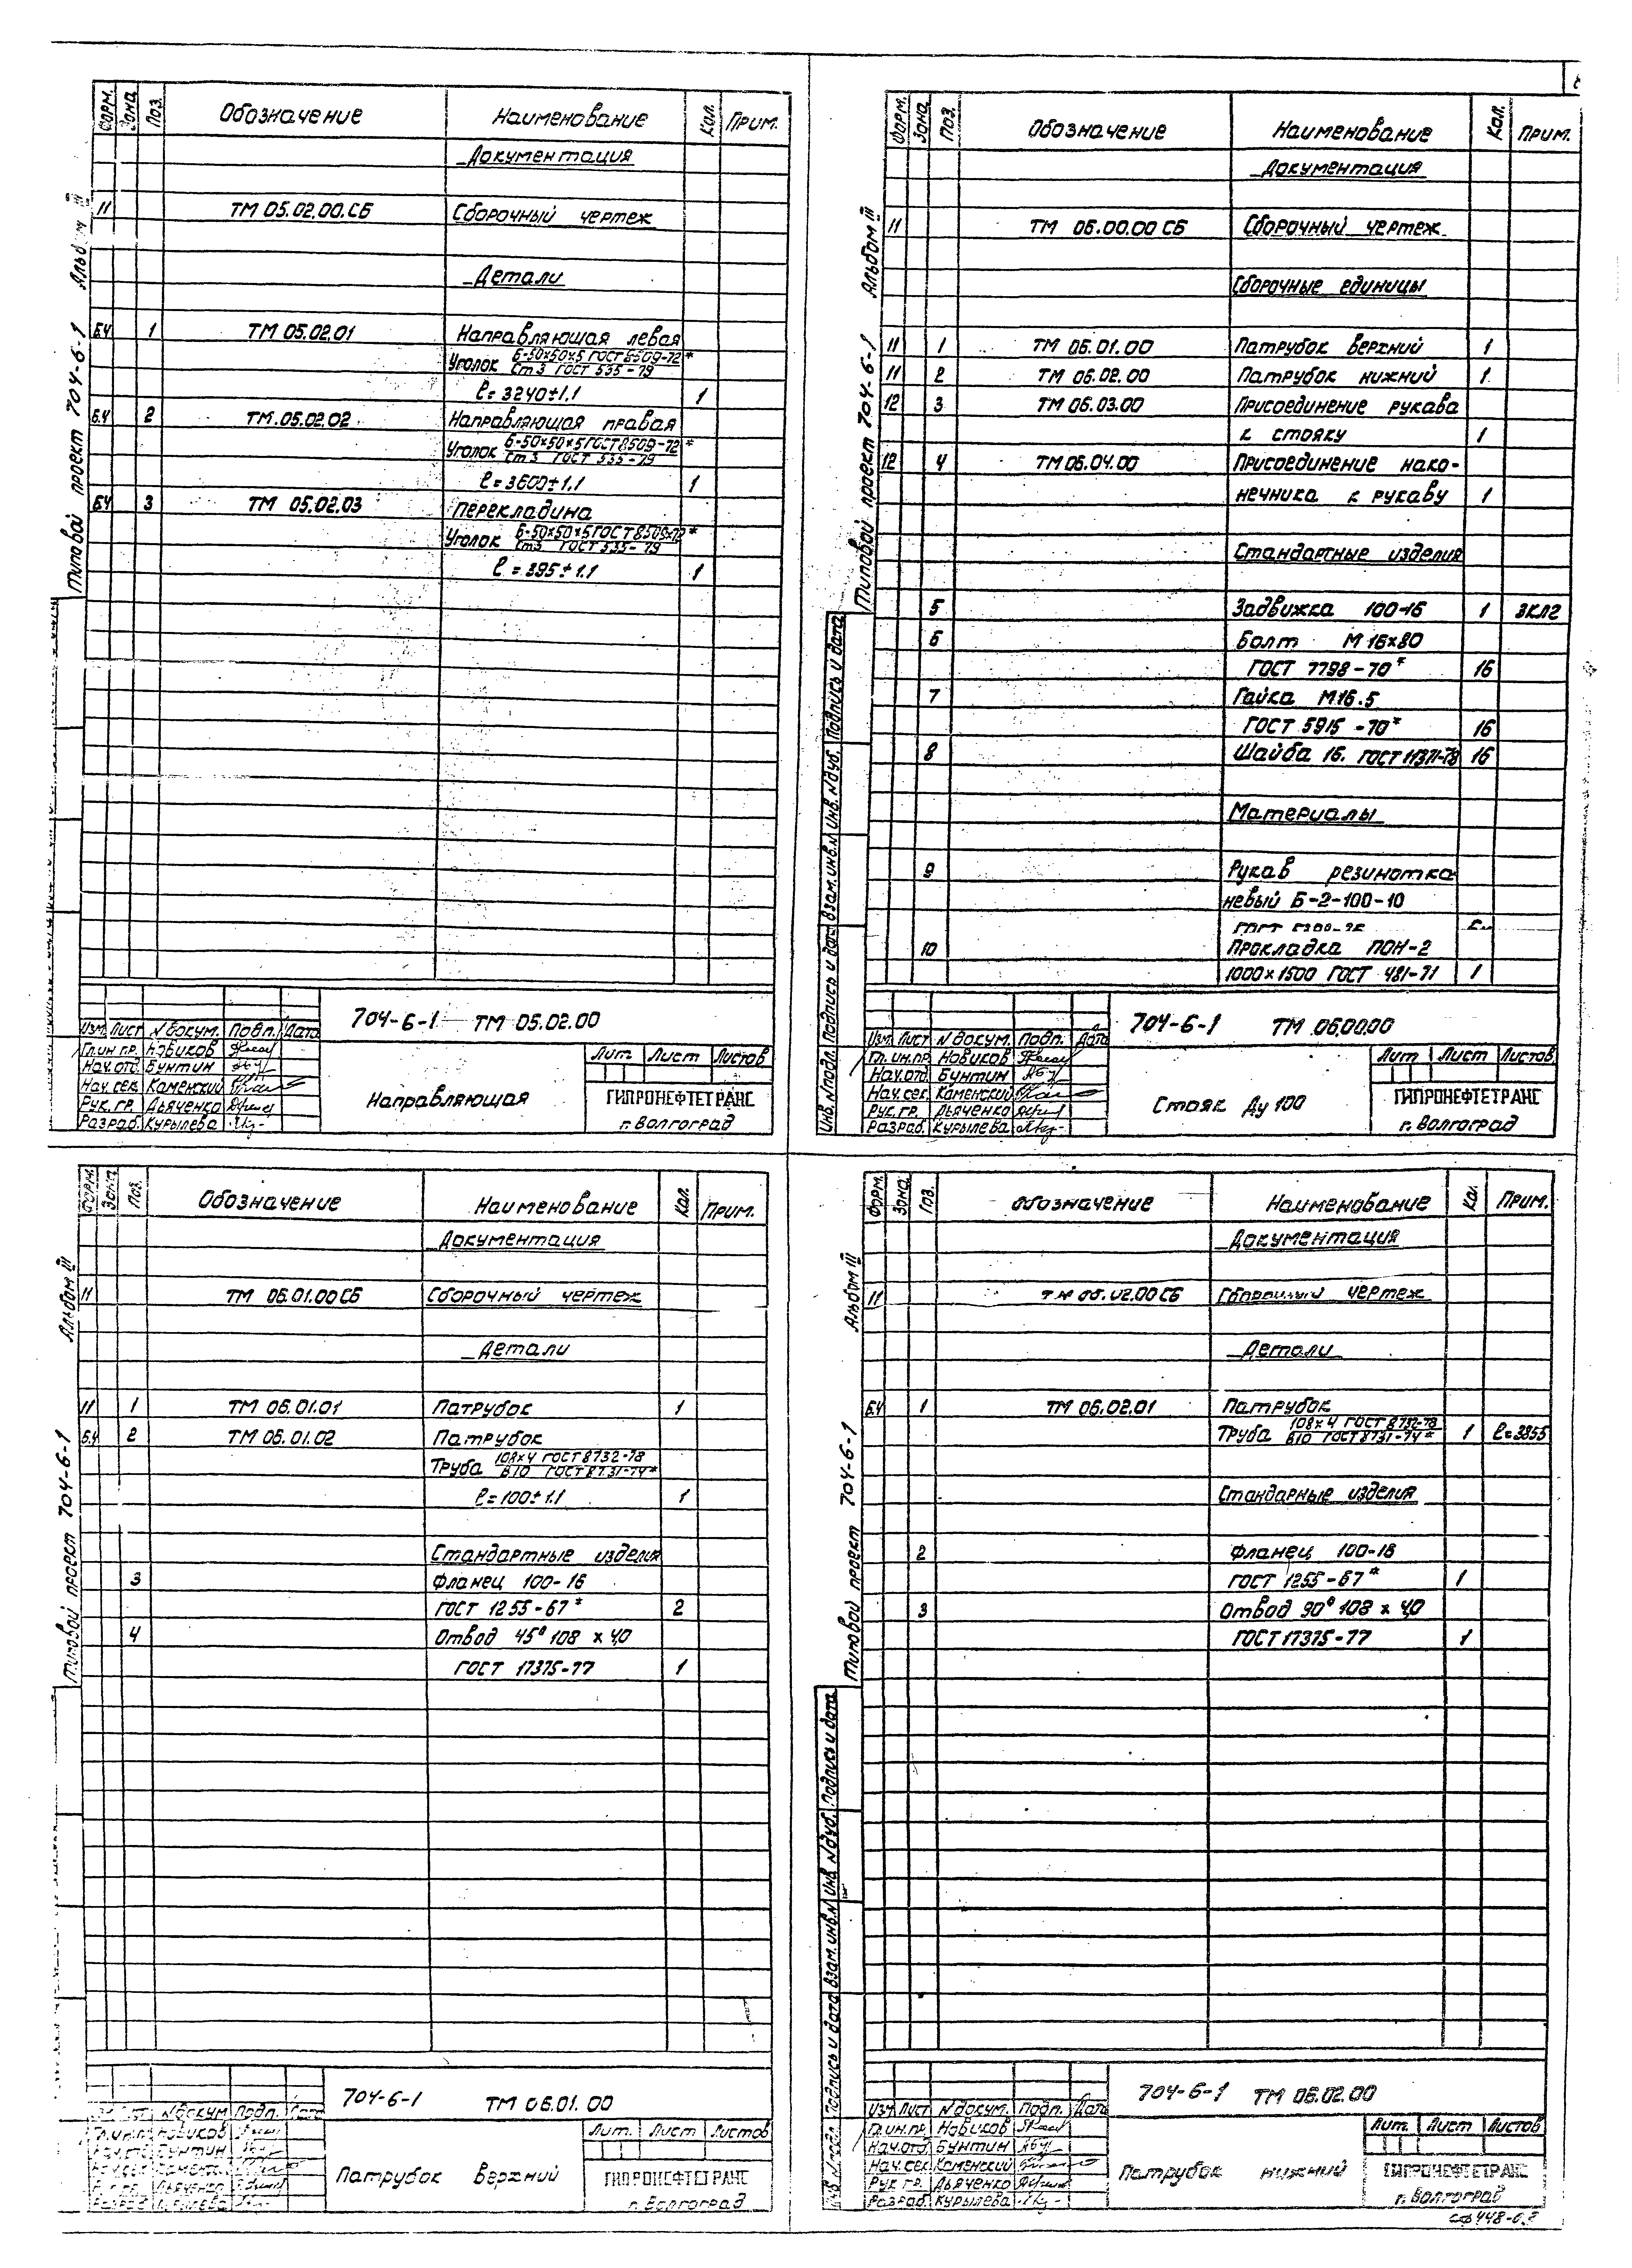 Форм. Зона Поз. Обозначение Наименование Кол. Прим.
Документация
11 ТМ 05.02.00.СБ Сборочный чертеж
Детали
БЧ 1 ТМ 05.02.01 Направляющая левая
Уголок Б-50х50х5 ГОСТ 8509-72*
Ст3 ГОСТ 535-79
ℓ=3240±1.1 1
БЧ 2 ТМ.05.02.02 Направляющая правая
Уголок Б-50х50х5 ГОСТ 8509-72*
Ст3 ГОСТ 535-79
ℓ=3600±1.1 1
БЧ 3 ТМ 05.02.03 Перекладина
Уголок Б-50х50х5 ГОСТ 8509-72*
Ст3 ГОСТ 535-79
ℓ=395±1.1 1
Типовой проект 704-6-1 Альбом III
704-6-1 ТМ 05.02.00
Изм. Лист N докум. Подп. Дата
Гл.ин.пр. Новиков
Нач.отд. Бунтин
Нач. сек. Каменский
Рук. гр. Дьяченко
Разраб. Курылева
Направляющая
Лит. Лист Листов
ГИПРОНЕФТЕТРАНС
г. Волгоград
Форм. Зона Поз. Обозначение Наименование Кол. Прим.
Документация
11 ТМ 06.00.00 СБ Сборочный чертеж
Сборочные единицы
11 1 ТМ 06.01.00 Патрубок верхний 1
11 2 ТМ 06.02.00 Патрубок нижний 1
12 3 ТМ 06.03.00 Присоединение рукава
к стояку 1
12 4 ТМ 06.04.00 Присоединение нако-
нечника к рукаву 1
Стандартные изделия
5 Задвижка 100-16 1 ЗКЛ2
6 Болт М 16х80
ГОСТ 7798-70* 16
7 Гайка М16.5
ГОСТ 5915-70* 16
8 Шайба 16. ГОСТ 11371-78 16
Материалы
9 Рукав резинотка
невый Б-2-100-10
ГОСТ
10 Прокладка ПОН-2
1000х1500 ГОСТ 481-71 1
Типовой проект 704-6-1 Альбом III
Инв. N подл. Подпись и дата Взам. инв. N Инв. N дуб. Подпись и дата
704-6-1 ТМ 06.00.00
Изм. Лист N докум. Подп. Дата
Гл. ин.пр. Новиков
Нач.отд. Бунтин
Нач. сек. Каменский
Рук. гр. Дьяченко
Разраб. Курылева
Стояк Ду 100
Лит Лист Листов
ГИПРОНЕФТЕТРАНС
г. Волгоград
Форм. Зона Поз. Обозначение Наименование Кол. Прим.
Документация
11 ТМ 06.01.00 СБ Сборочный чертеж
Детали
11 1 ТМ 06.01.01 Патрубок 1
БЧ 2 ТМ 06.01.02 Патрубок
Труба 108х4 ГОСТ 8732-78
В10 ГОСТ 8731-74*
ℓ=100±1.1 1
Стандартные изделия
3 Фланец 100-16
ГОСТ 1255-67* 2
4 Отвод 45° 108 х 4,0
ГОСТ 17375-77 1
Типовой проект 704-6-1 Альбом III
704-6-1 ТМ 06.01.00
N докум. Подп. Дата
Гл.ин.пр. Новиков
Бунтин
Дьяченко
Разраб.
Патрубок верхний
Лит. Лист Листов
ГИПРОНЕФТЕТРАНС
г. Волгоград
Форм. Зона Поз. Обозначение Наименование Кол. Прим.
Документация
11 ТМ 06.02.00 СБ Сборочный чертеж
Детали
БЧ 1 ТМ 06.02.01 Патрубок
Труба 108х4 ГОСТ 8732-78
В10 ГОСТ 8731-74* 1 ℓ=3855
Стандарные изделия
2 Фланец 100-16
ГОСТ 1255-67* 1
3 Отвод 90° 108 х 4,0
ГОСТ 17375-77 1
Типовой проект 704-6-1 Альбом III
Инв. N подл. Подпись и дата Взам. инв. N Инв. N дуб. Подпись и дата
704-6-1 ТМ 06.02.00
Изм. Лист N докум. Подп. Дата
Гл.ин.пр. Новиков
Нач.отд. Бунтин
Нач. сек. Каменский
Рук. гр. Дьяченко
Разраб. Курылева
Патрубок нижний
Лит. Лист Листов
ГИПРОНЕФТЕТРАНС
г. Волгоград